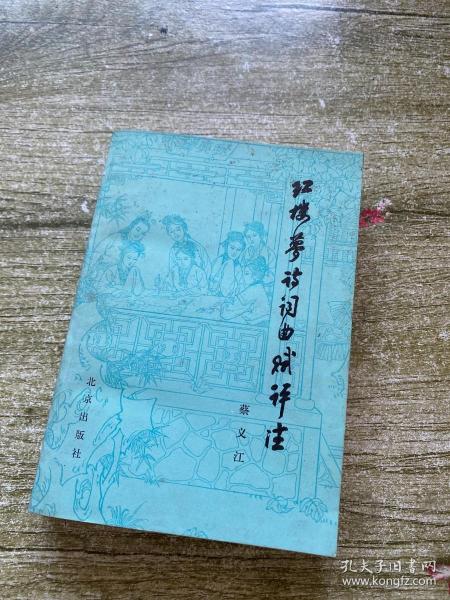 红楼梦诗词曲赋评注
蔡义江
北京出版社
孔夫子旧书网
www.kongfz.com